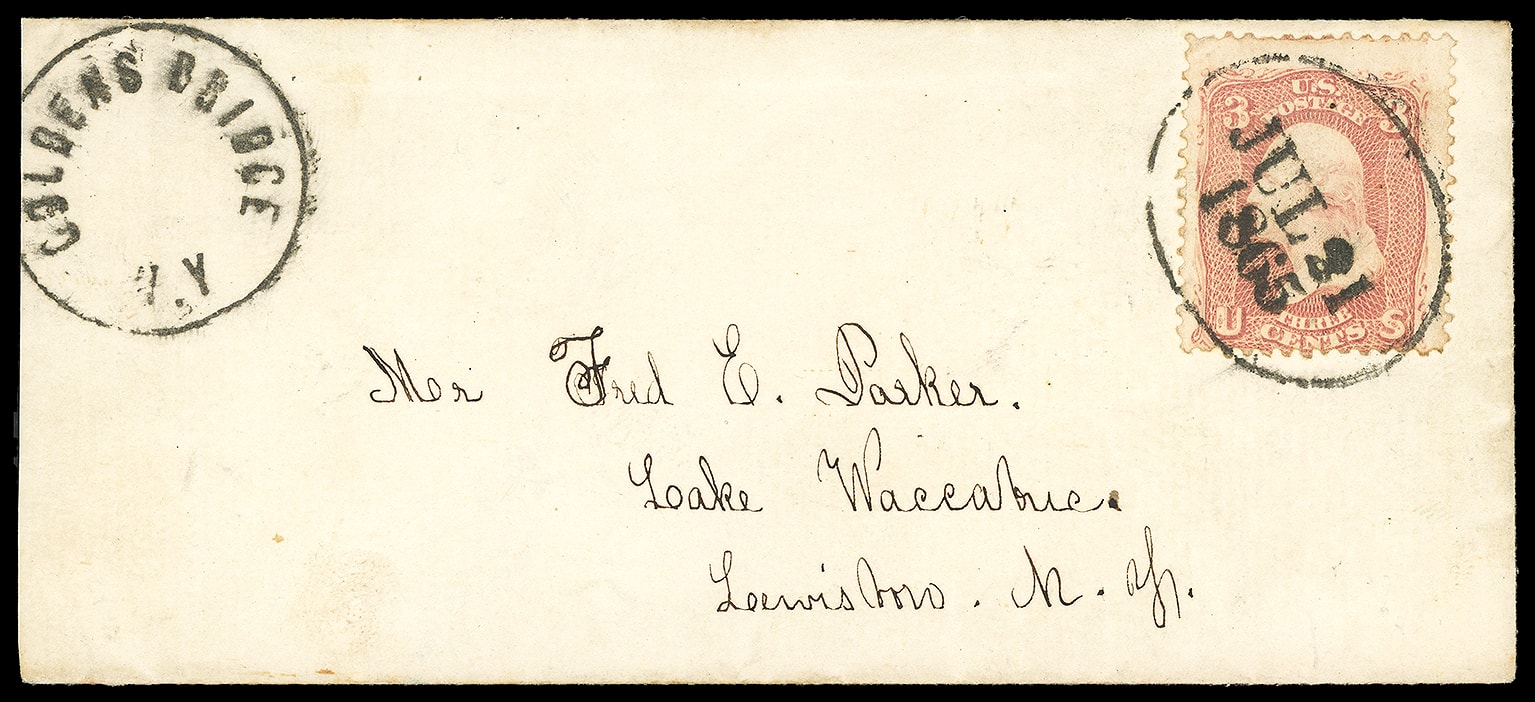 GOLDENS BRIDGE
N.Y
3 U.S. 3
POSTAGE
JUL 21
1865
THREE
U CENTS S
Mr Fred E. Parker.
Lake Waccabuc.
Lewisboro. N. Y.